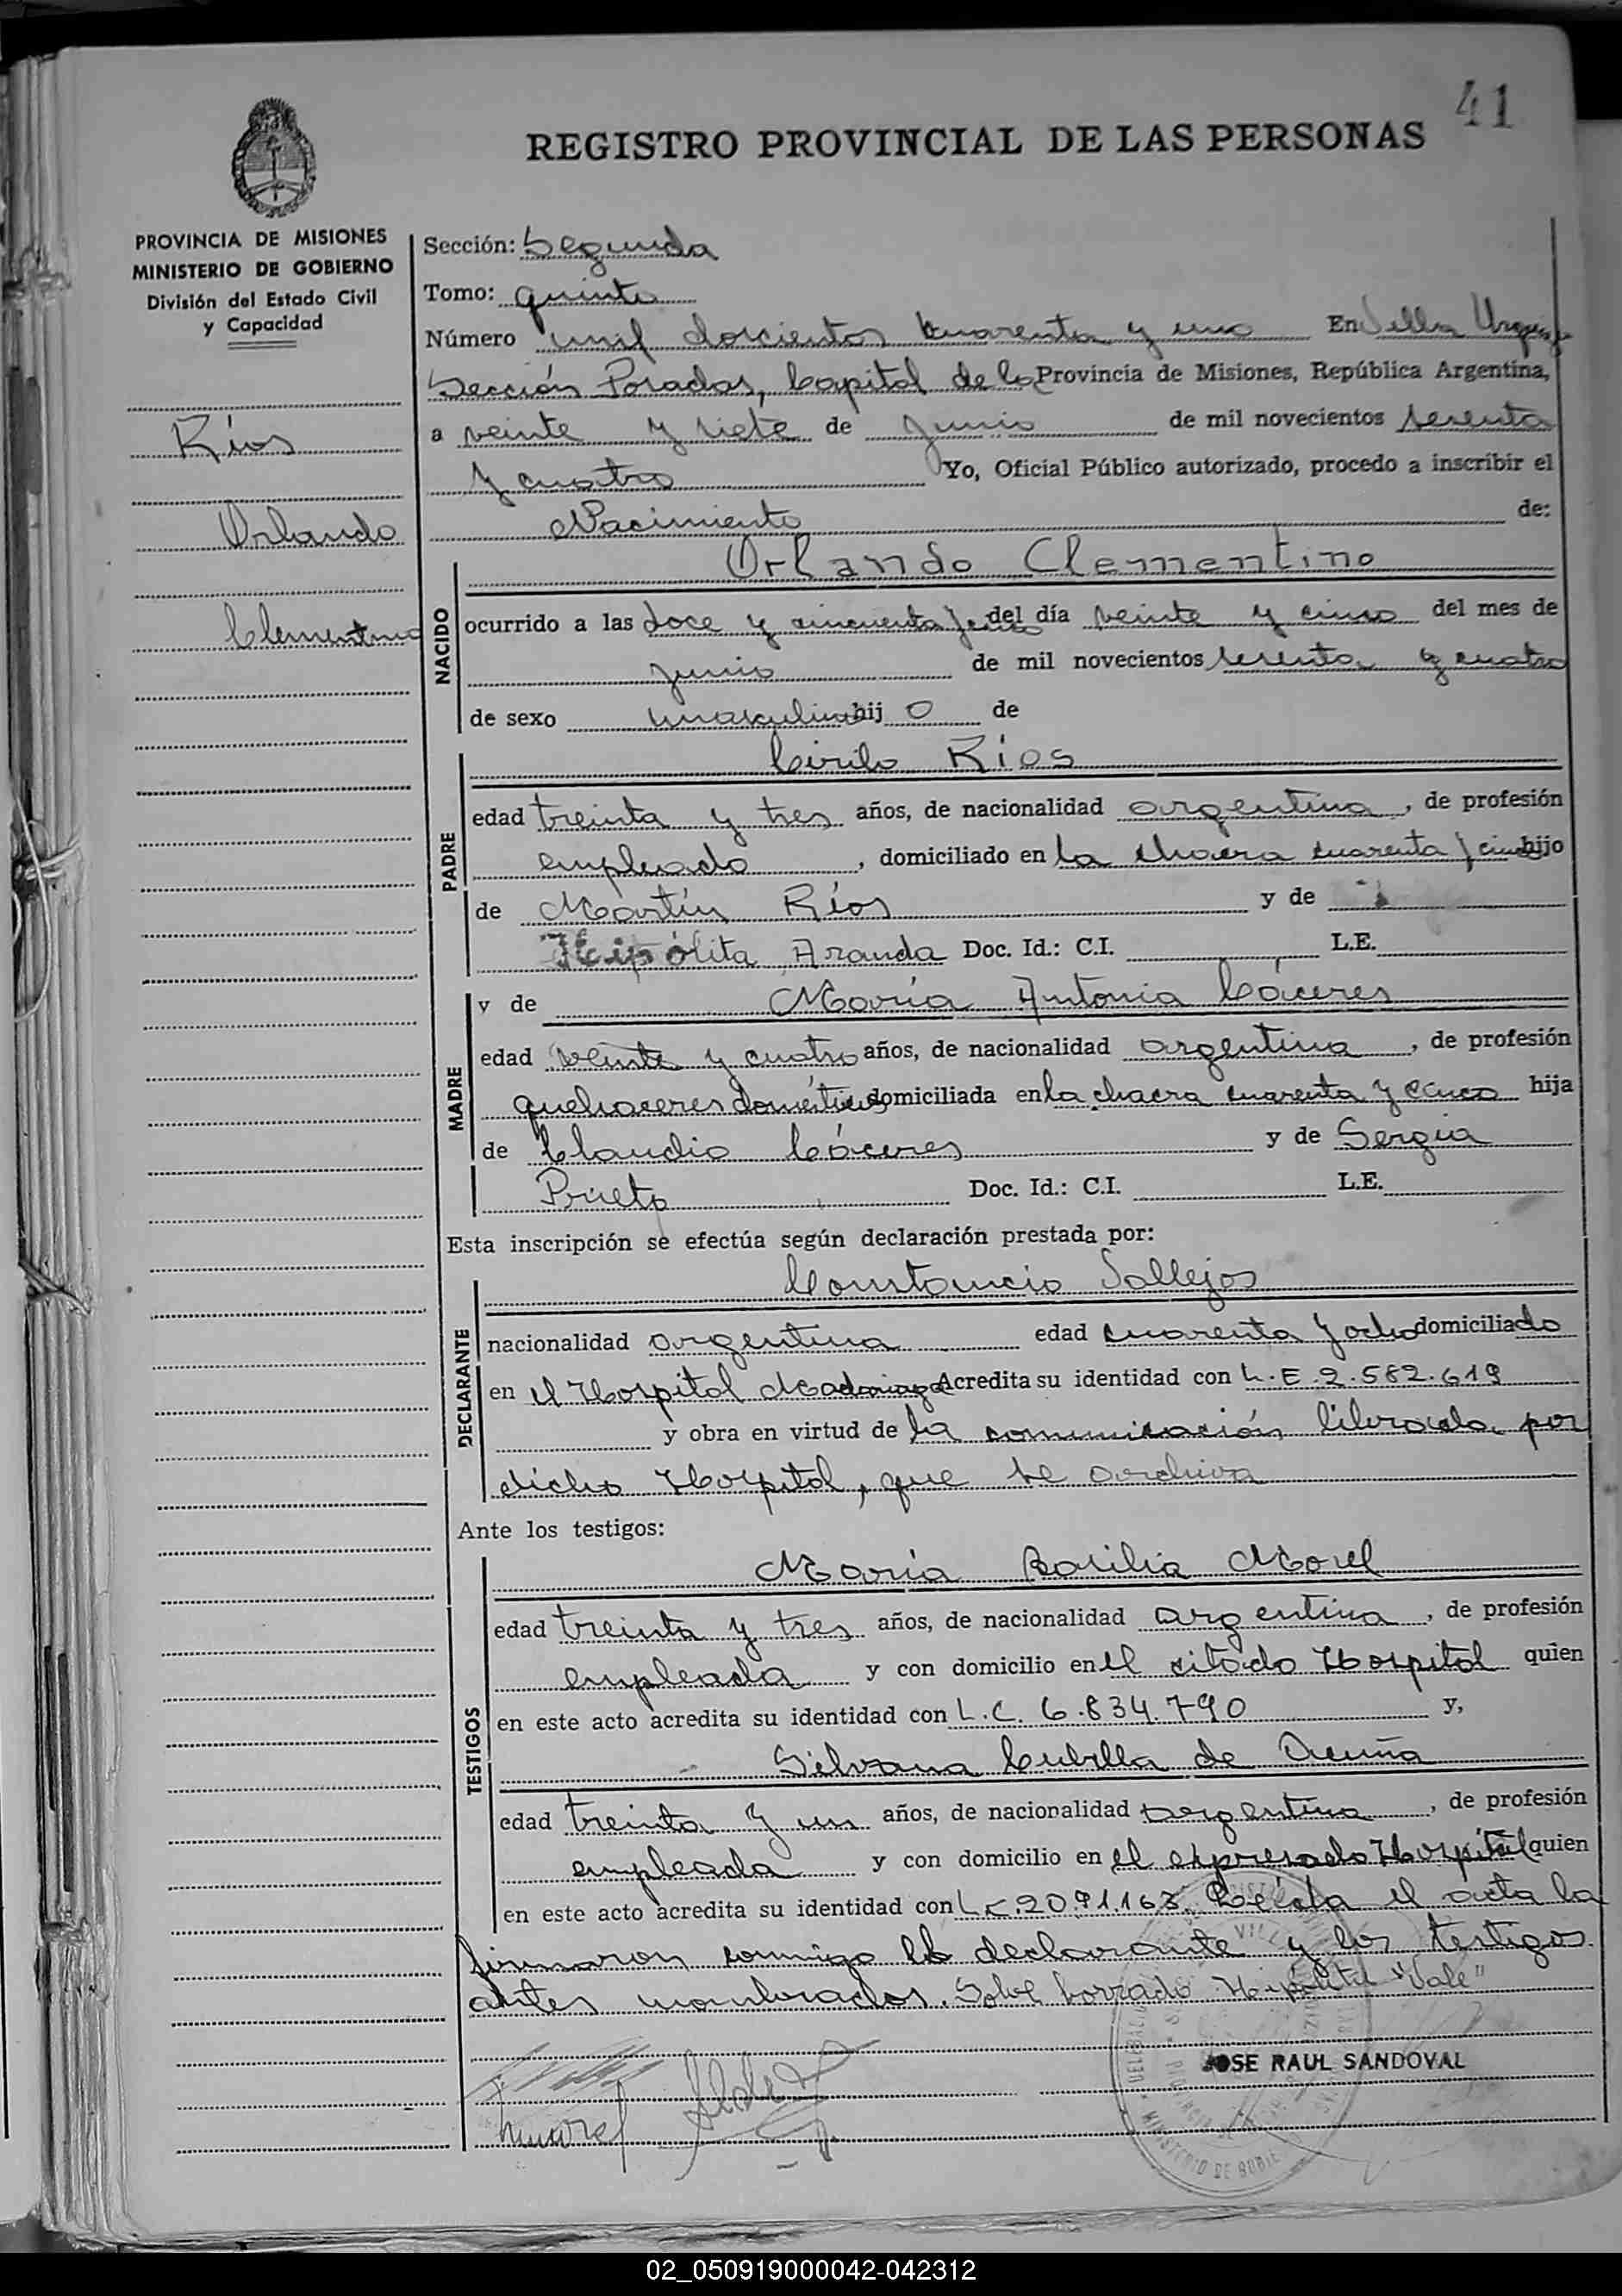 41
REGISTRO PROVINCIAL DE LAS PERSONAS
PROVINCIA DE MISIONES
MINISTERIO DE GOBIERNO
División del Estado Civil
y Capacidad
Ríos
Orlando
Clementino
Sección: Segunda
Tomo: quinto
Número mil doscientos cuarenta y uno En Villa Urquiza
Sección Posadas, Capital de la Provincia de Misiones, República Argentina,
a veinte y siete de junio de mil novecientos sesenta
y cuatro Yo, Oficial Público autorizado, procedo a inscribir el
Nacimiento de:
NACIDO
Orlando Clementino
ocurrido a las doce y cincuenta y cinco del día veinte y cinco del mes de
junio de mil novecientos sesenta y cuatro
de sexo masculino hij o de
PADRE
Cirilo Ríos
edad treinta y tres años, de nacionalidad argentina, de profesión
empleado, domiciliado en la chacra cuarenta y cinco hijo
de Martín Ríos y de
Hipólita Aranda Doc. Id.: C.I. L.E.
MADRE
y de María Antonia Cáceres
edad veinte y cuatro años, de nacionalidad argentina, de profesión
quehaceres domésticos domiciliada en la chacra cuarenta y cinco hija
de Claudio Cáceres y de Sergia
Prieto Doc. Id.: C.I. L.E.
Esta inscripción se efectúa según declaración prestada por:
DECLARANTE
Constancio Vallejos
nacionalidad argentina edad cuarenta y ocho domiciliado
en el Hospital Madariaga Acredita su identidad con L.E 2.582.619
y obra en virtud de la comunicación librada por
dicho Hospital, que se archiva
Ante los testigos:
TESTIGOS
María Basilia Morel
edad treinta y tres años, de nacionalidad argentina, de profesión
empleada y con domicilio en el citado Hospital quien
en este acto acredita su identidad con L.C. 6.834.790 y,
Silvana Cubilla de Acuña
edad treinta y un años, de nacionalidad argentina, de profesión
empleada y con domicilio en el expresado Hospital quien
en este acto acredita su identidad con L.C. 2091.163. Leída el acta la
firmaron conmigo el declarante y los testigos
antes nombrados. Sobre borrado: Hipólita "Vale"
JOSE RAUL SANDOVAL
mmorel
02_050919000042-042312